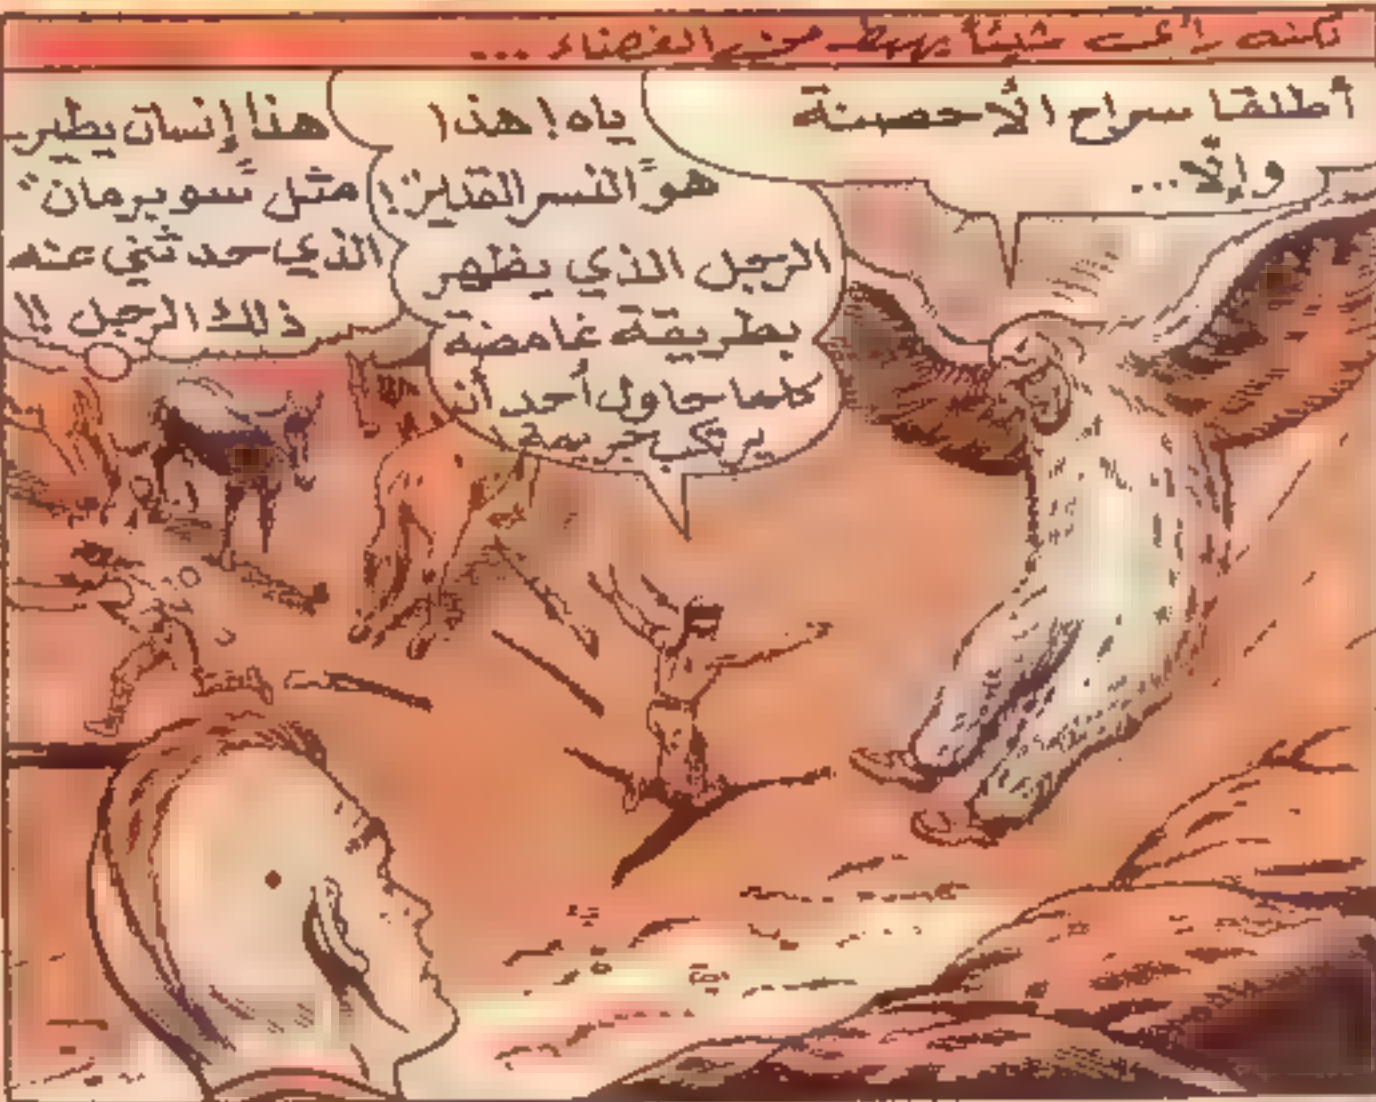 لكنه رأى شيئاً يهبط من الفضاء ...
أطلقا سراح الأحصنة
وإلّا...
ياه! هذا
هو "النسر القدير"!
الرجل الذي يظهر
بطريقة غامضة
كلما حاول أحد أن
يرتكب جريمة!
هذا إنسان يطير
مثل "سوبرمان"
الذي حدثني عنه
ذلك الرجل!!